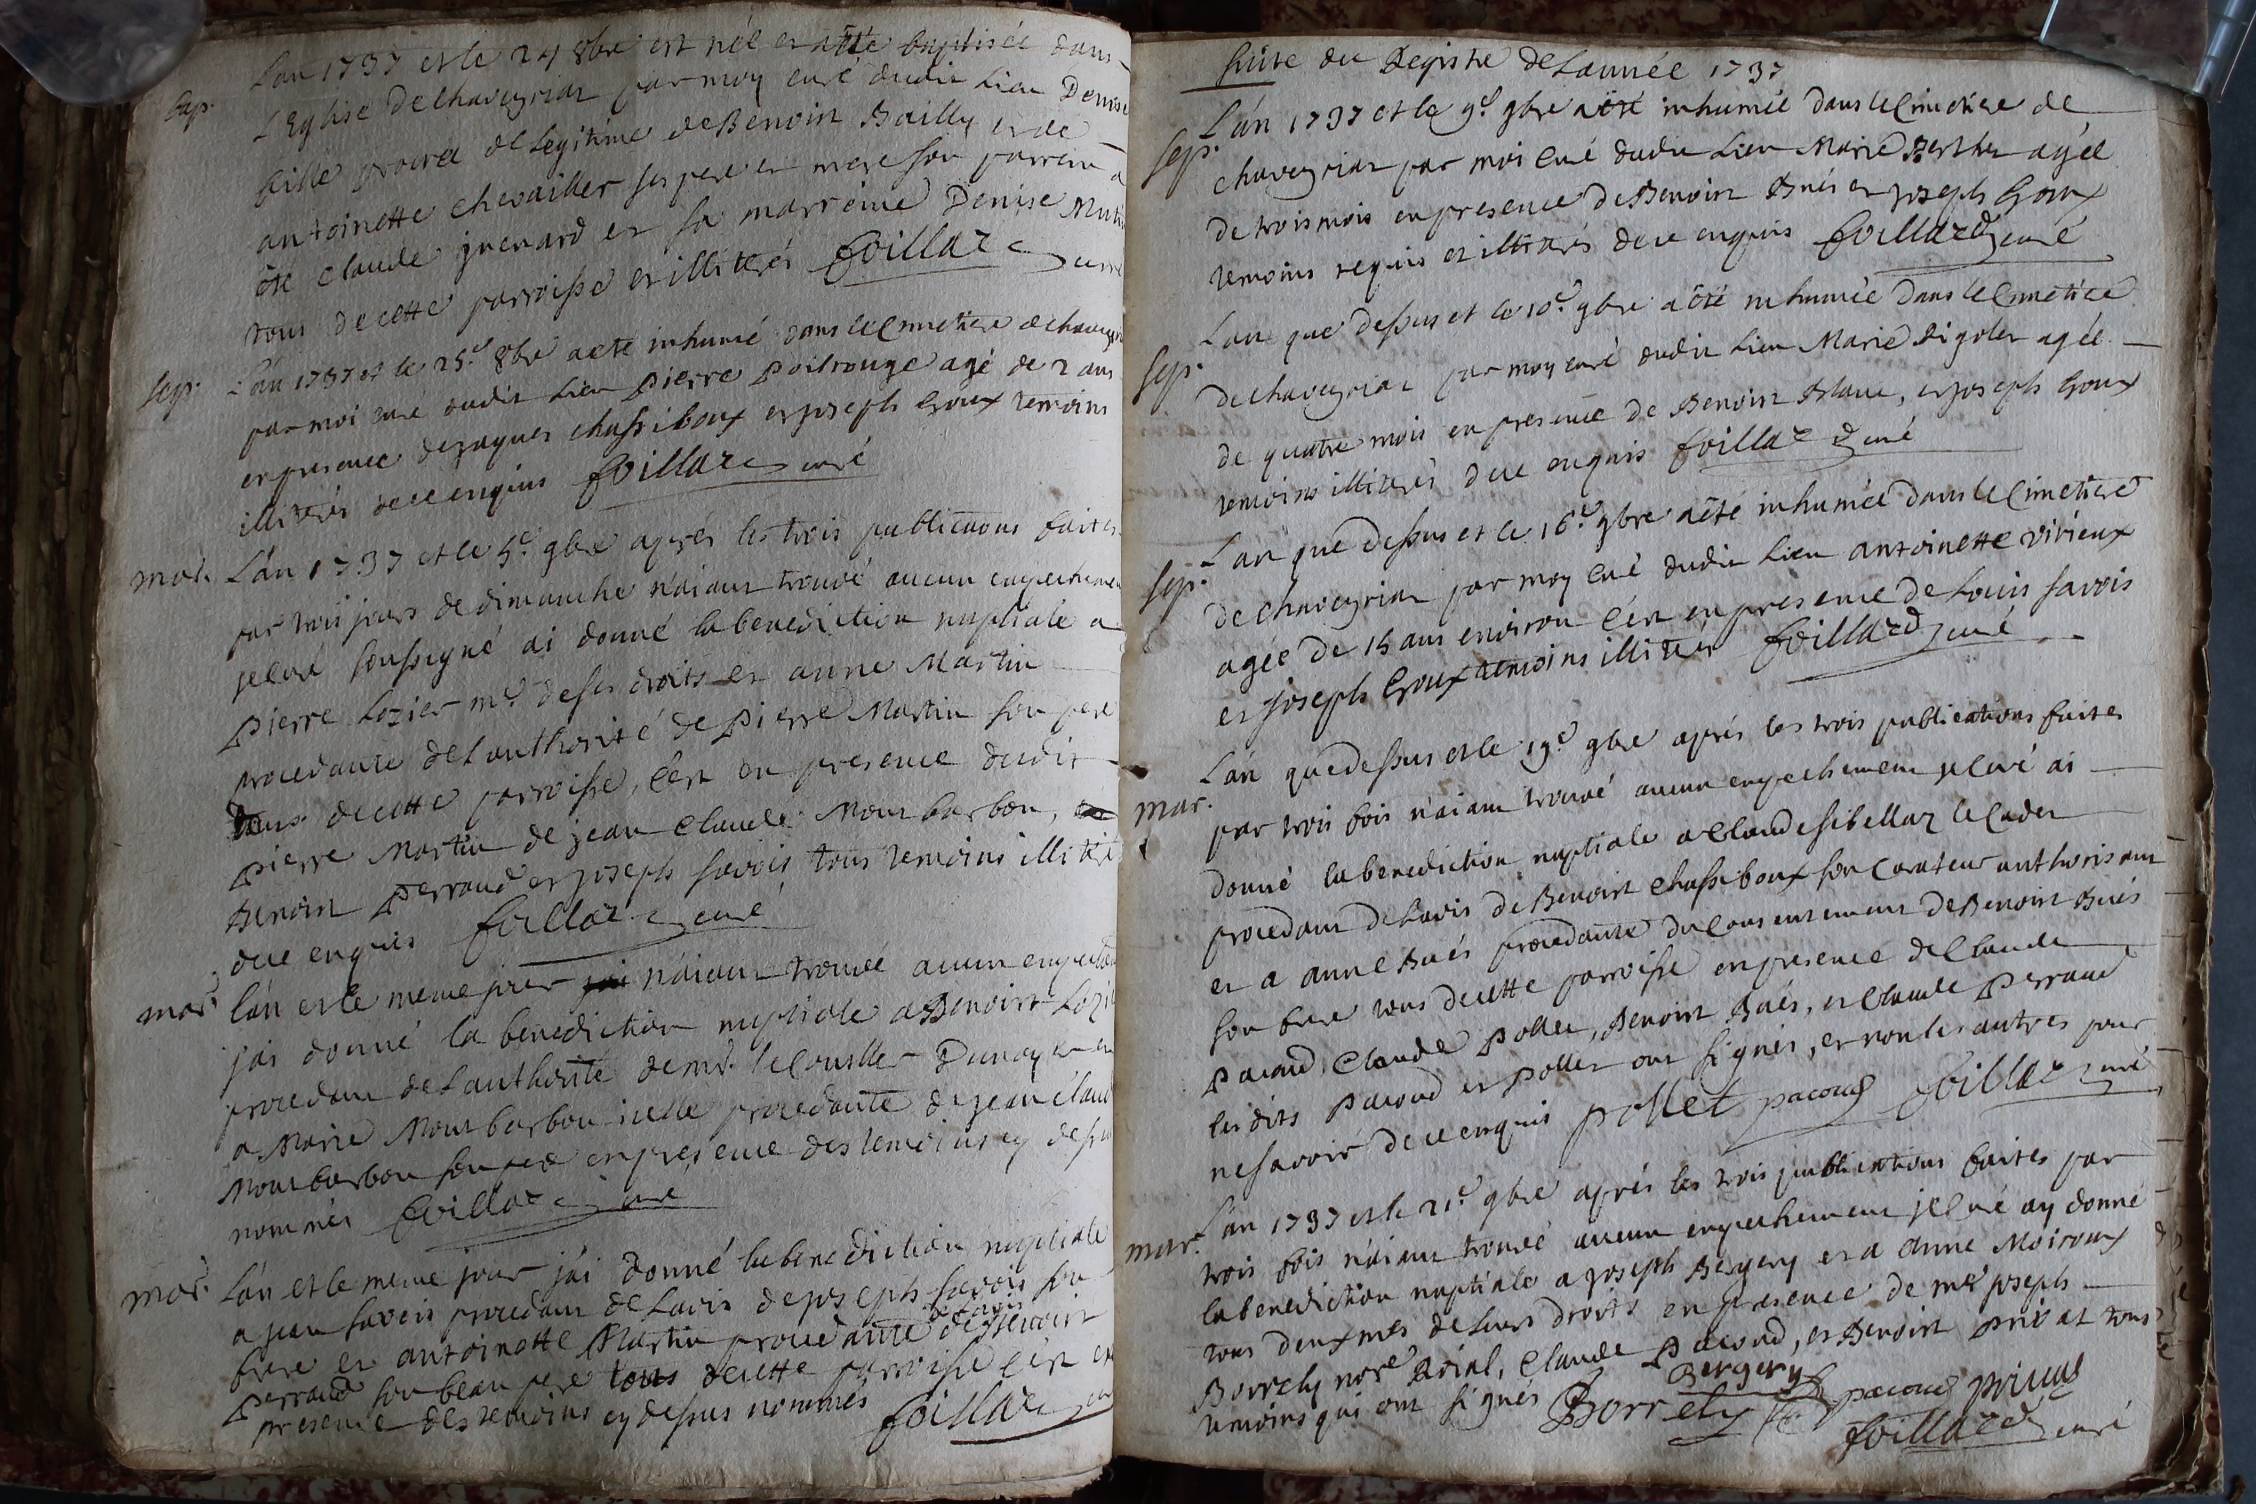 bap. L'an 1737 et le 24 8bre est née et a été baptisée dans
L'Eglise de chaveyriat par moy curé dudit Lieu Denise
fille procréé de Legitime de Benoist Bailly et de
antoinette chevailler ses pere et mere son parrein a
été claude guenard et sa marreine Denise
tous de cette parroisse et illiterés foillard curé
sep. L'án 1737 et le 25.e 8bre a eté inhumé dans le Cimetiere de chaveyriat
par moi curé dudit Lieu pierre poilrouge agé de 2 ans
en presence de jaques chassiboux et joseph Goux temoins
illiterés de ce enquis foillard curé
mar. L'án 1737 et le 5.e 9bre aprés les trois publications faites
par trois jours de dimanche n'aiant trouvé aucun empechement
je curé soussigné ai donné la benediction nuptiale a
pierre Lozier m.e de ses droits et anne Martin
procedante de L'authorité de Pierre Martin son pere
tous de cette parroisse, c'est en presence dudit
pierre Martin de jean Claude Montbarbon,
Benoist perraud et joseph savois tous temoins illiterés
de ce enquis foillard curé
mar. l'án et le meme jour n'aiant trouvé aucun empechement
j'ai donné la benediction nuptiale a Benoist Lozier
procedant de L'authorité de mr. le Conseiller Dunoyer et
a Marie Montbarbon icelle procedante de jean claude
Montbarbon son pere en presence des temoins cy dessus
nommés foillard curé
mar. L'án et le meme jour j'ái donné la benediction nuptiale
a jean savois procedant de L'avis de joseph savois son
frere et antoinette Martin procedante de l'avis de Benoist
perraud son beau pere tous de cette parroisse c'est en
presence des temoins cy dessus nommés foillard curé
Suite du Registre de L'année 1737
sep. L'án 1737 et le 9.e 9bre a été inhumée dans le Cimetiere de
chaveyriat par moi curé dudit Lieu Marie agée
de trois mois en presence de Benoist Bués et joseph Goux
temoins requis et illiterés de ce enquis foillard curé
sep. L'an que dessus et le 10.e 9bre a été inhumée dans le Cimetiere
de chaveyriat par moy curé dudit Lieu Marie Rigolet agée
de quatre mois en presence de Benoist Blanc, et joseph Goux
temoins illiterés de ce enquis foillard curé
sep. L'an que dessus et le 16.e 9bre a été inhumée dans le Cimetiere
de chaveyriat par moy Curé dudit Lieu antoinette virieux
agée de 15 ans environ c'est en presence de Louis savois
et joseph Goux temoins illiterés foillard curé
mar. L'án que dessus et le 19.e 9bre aprés les trois publications faites
par trois fois n'aiant trouvé aucun empechement je curé ai
donné la benediction nuptiale a Claude sibellaz le Cadet
procedant de L'avis de Benoist chassiboux son Curateur authorisant
et a anne Bués procedante du Consentement de Benoist Bués
son frere tous de cette parroisse en presence de Claude
Pacoud, Claude Pollet, Benoist Bués, et Claude Perraud
lesdits Pacoud et Pollet ont signés, et non les autres pour
ne savoir de ce enquis pollet pacoud foillard curé
mar. L'an 1737 et le 21.e 9bre aprés les trois publications faites par
trois fois n'aiant trouvé aucun empechement je curé ay donné
la benediction nuptiale a joseph Bergery et a Anne Moiroux
tous deux m.es de Leurs droits en presence de m.e joseph
Borrely no.re Roial, Claude Pacoud, et Benoist privat tous
temoins qui ont signés Borrely Bergery pacoud privat
foillard curé